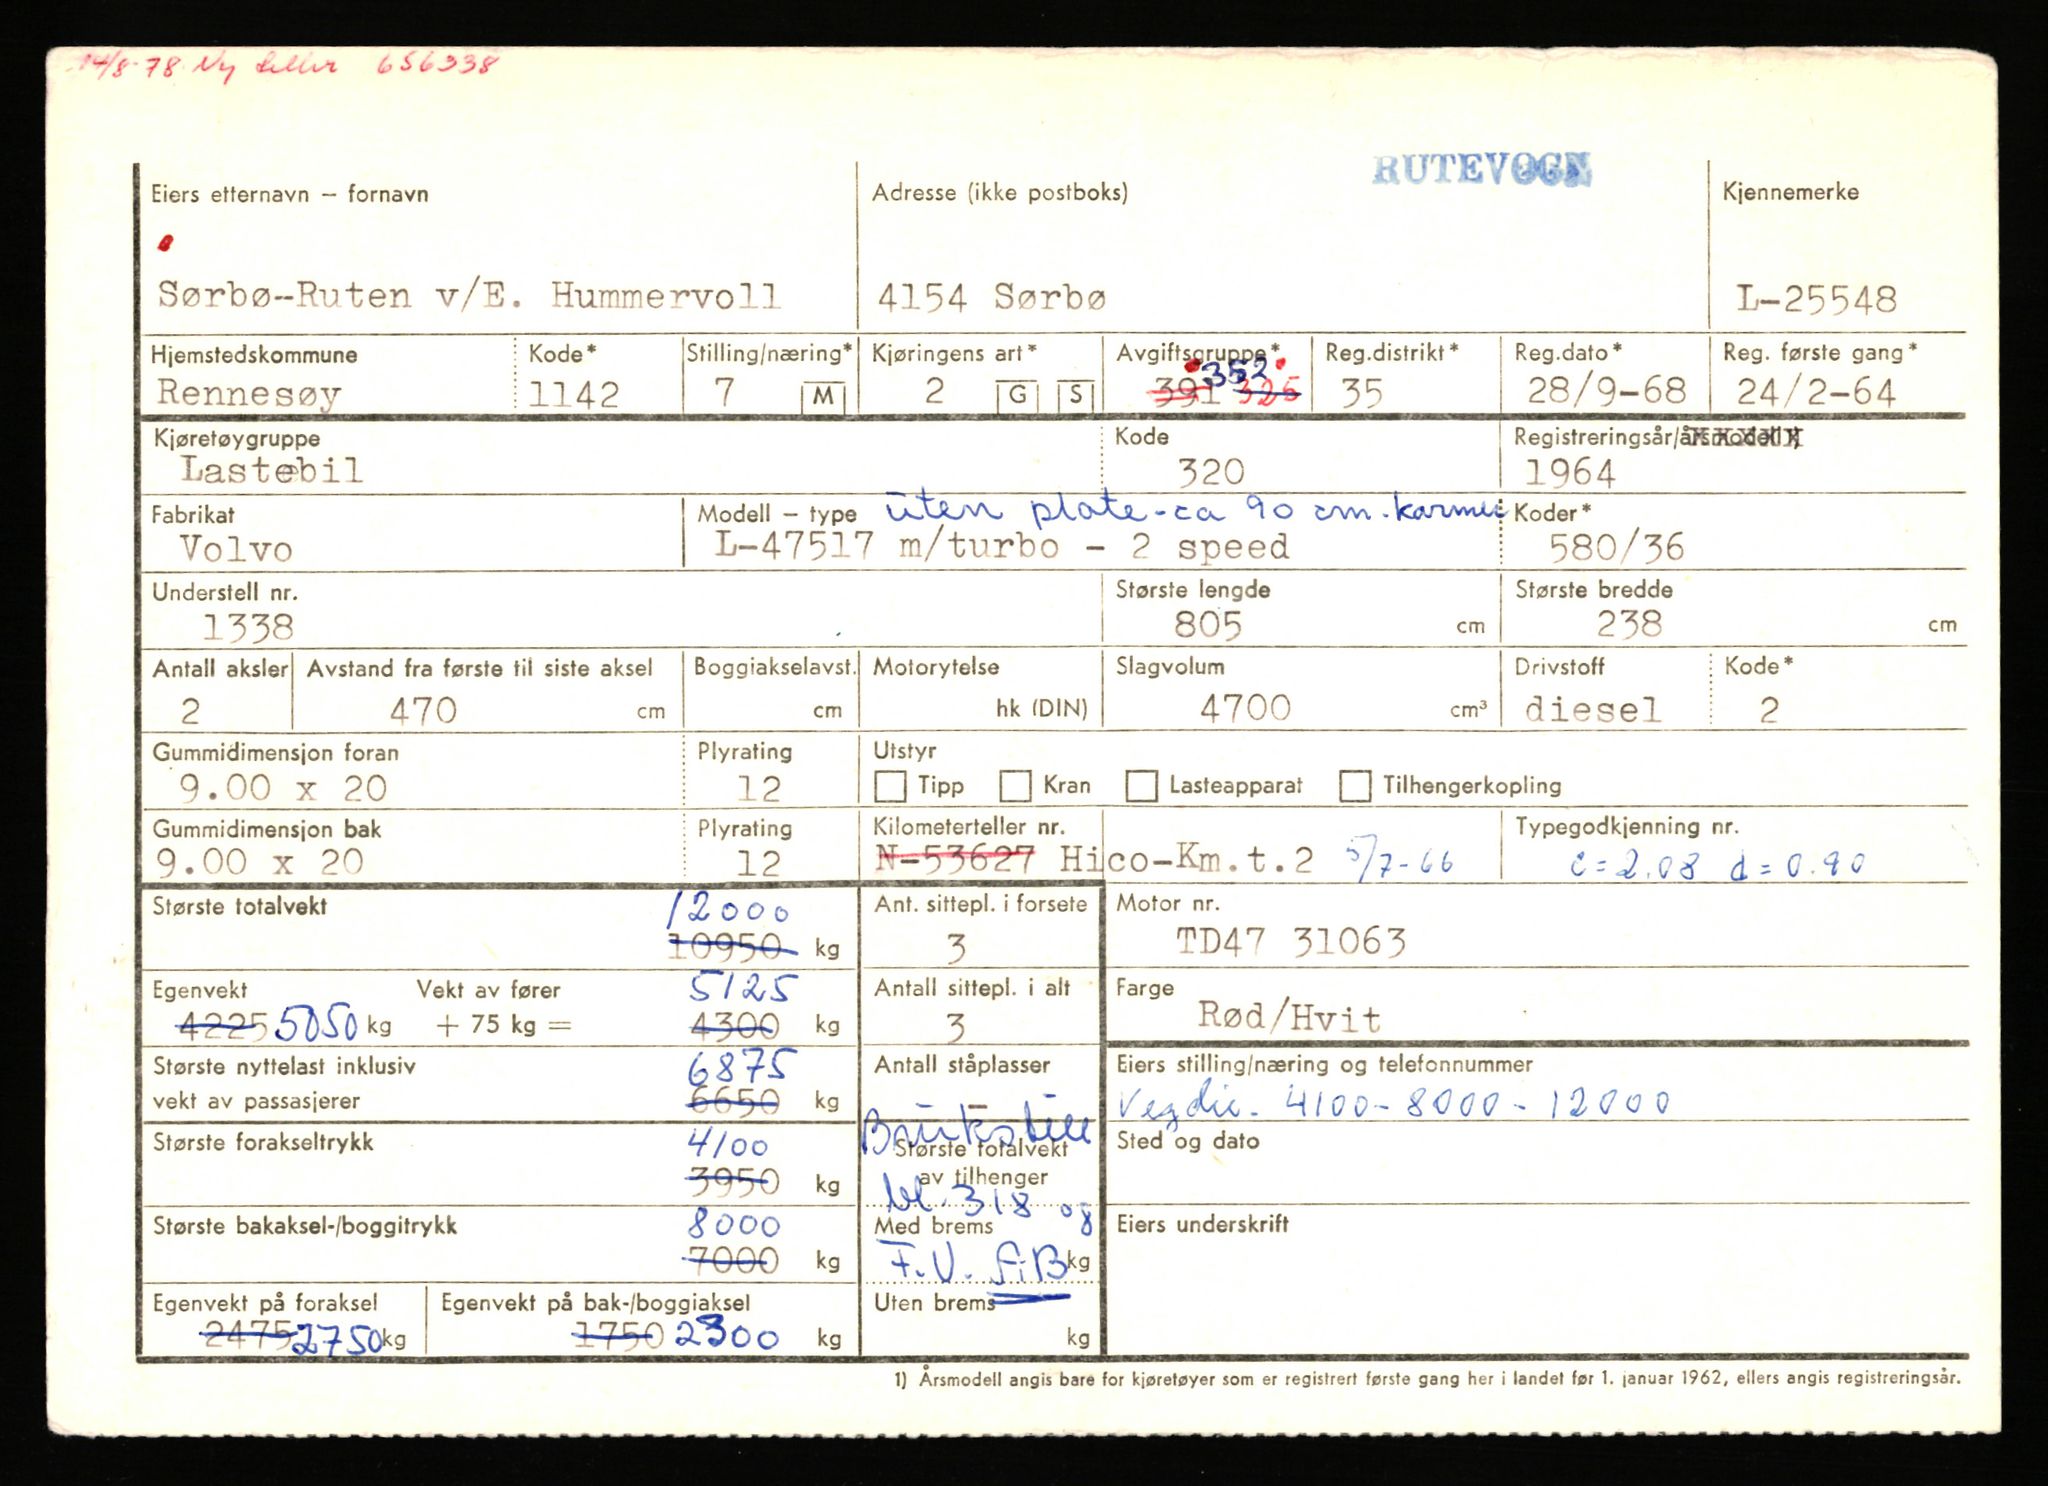 14/8-78 Ny teller 656338
RUTEVOGN
Eiers etternavn – fornavn Adresse (ikke postboks) Kjennemerke
Sørbø-Ruten v/E. Hummervoll 4154 Sørbø L-25548
Hjemstedskommune Kode* Stilling/næring* Kjøringens art* Avgiftsgruppe* Reg.distrikt* Reg.dato* Reg. første gang*
352
Rennesøy 1142 7 M 2 G S 391 326 35 28/9-68 24/2-64
Kjøretøygruppe Kode Registreringsår/årsmodell
Lastebil 320 1964
Fabrikat Modell – type uten plate - ca 90 cm. karmer Koder*
Volvo L-47517 m/turbo - 2 speed 580/36
Understell nr. Største lengde Største bredde
1338 805 cm 238 cm
Antall aksler Avstand fra første til siste aksel Boggiakselavst. Motorytelse Slagvolum Drivstoff Kode*
2 470 cm cm hk (DIN) 4700 cm³ diesel 2
Gummidimensjon foran Plyrating Utstyr
9.00 x 20 12 Tipp Kran Lasteapparat Tilhengerkopling
Gummidimensjon bak Plyrating Kilometerteller nr. Typegodkjenning nr.
9.00 x 20 12 N-53627 Hico-Km.t.2 5/7-66 c=2.08 d=0.90
Største totalvekt 12000 Ant. sittepl. i forsete Motor nr.
10950 kg 3 TD47 31063
Egenvekt Vekt av fører 5125 Antall sittepl. i alt Farge
4225 5050 kg + 75 kg = 4300 kg 3 Rød/Hvit
Største nyttelast inklusiv 6875 Antall ståplasser Eiers stilling/næring og telefonnummer
vekt av passasjerer 6650 kg – Vegdir. 4100-8000-12000
Største forakseltrykk 4100 Brukstill Sted og dato
Største totalvekt
3950 kg av tilhenger
bl. 318 og
Største bakaksel-/boggitrykk 8000 Med brems Eiers underskrift
7000 kg F.V. kg
Egenvekt på foraksel Egenvekt på bak-/boggiaksel Uten brems
2475 2750 kg 1750 2300 kg kg
1) Årsmodell angis bare for kjøretøyer som er registrert første gang her i landet før 1. januar 1962, ellers angis registreringsår.